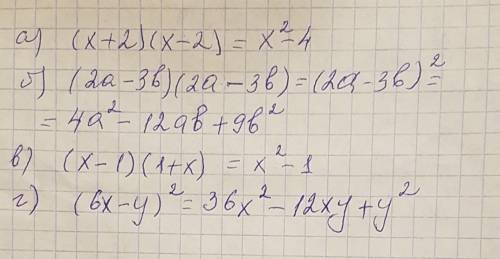 а) (x+2)(x-2) = x²-4
б) (2a-3b)(2a-3b)=(2a-3b)²=
=4a²-12ab+9b²
в) (x-1)(1+x) = x²-1
г) (6x-y)²=36x²-12xy+y²